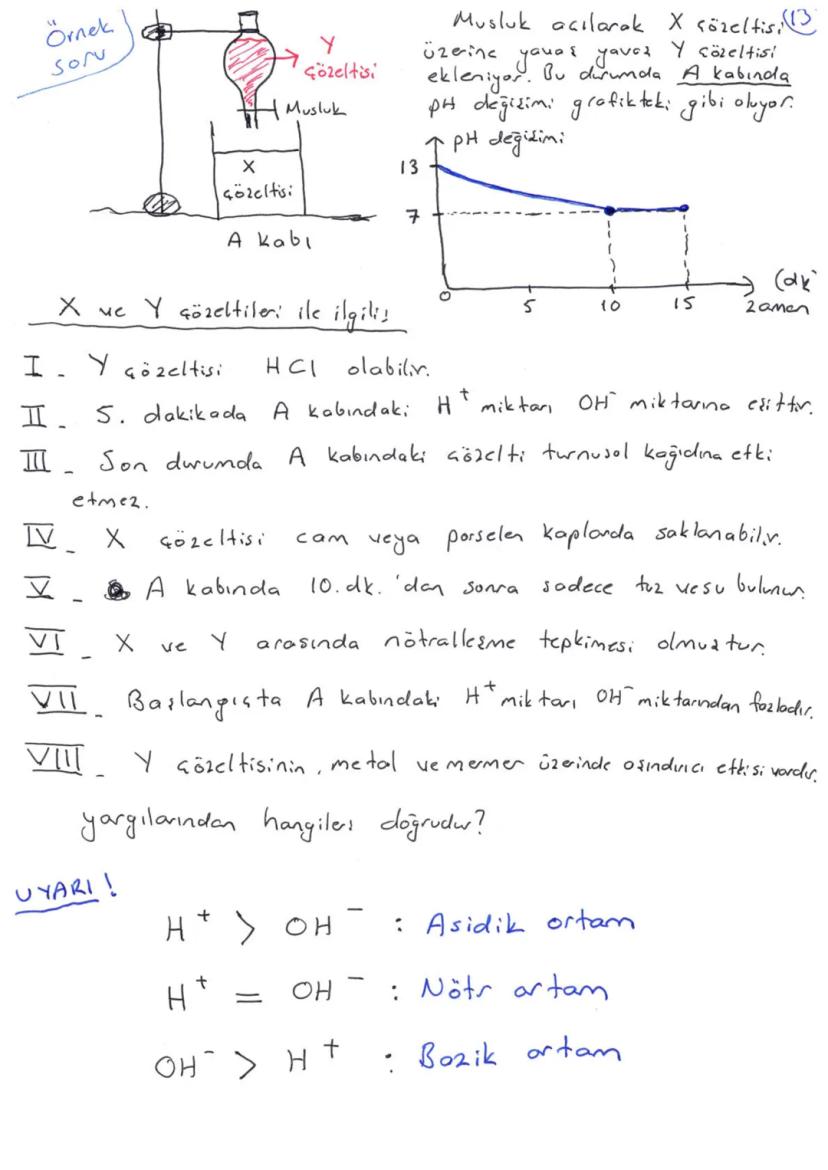 Örnek
soru
Y
çözeltisi
Musluk
X
çözeltisi
A kabı
13
Musluk açılarak X çözeltisi
üzerine yavaş yavaş Y çözeltisi
ekleniyor. Bu durumda A kabında
pH değişimi grafikteki gibi oluyor.
pH değişimi
13
7
0 5 10 15
(dk)
zaman
X ve Y çözeltileri ile ilgili;
I - Y çözeltisi HCl olabilir.
II - 5. dakikada A kabındaki H+ miktarı OH- miktarına eşittir.
III - Son durumda A kabındaki çözelti turnusol kağıdına etki
etmez.
IV - X çözeltisi cam veya porselen kaplarda saklanabilir.
V - A kabında 10. dk. 'dan sonra sadece tuz ve su bulunur.
VI - X ve Y arasında nötralleşme tepkimesi olmuştur.
VII - Başlangıçta A kabındaki H+ miktarı OH- miktarından fazladır.
VIII - Y çözeltisinin, metal ve mermer üzerinde aşındırıcı etkisi vardır.
yargılarından hangileri doğrudur?
UYARI!
H+ > OH- : Asidik ortam
H+ = OH- : Nötr ortam
OH- > H+ : Bazik ortam